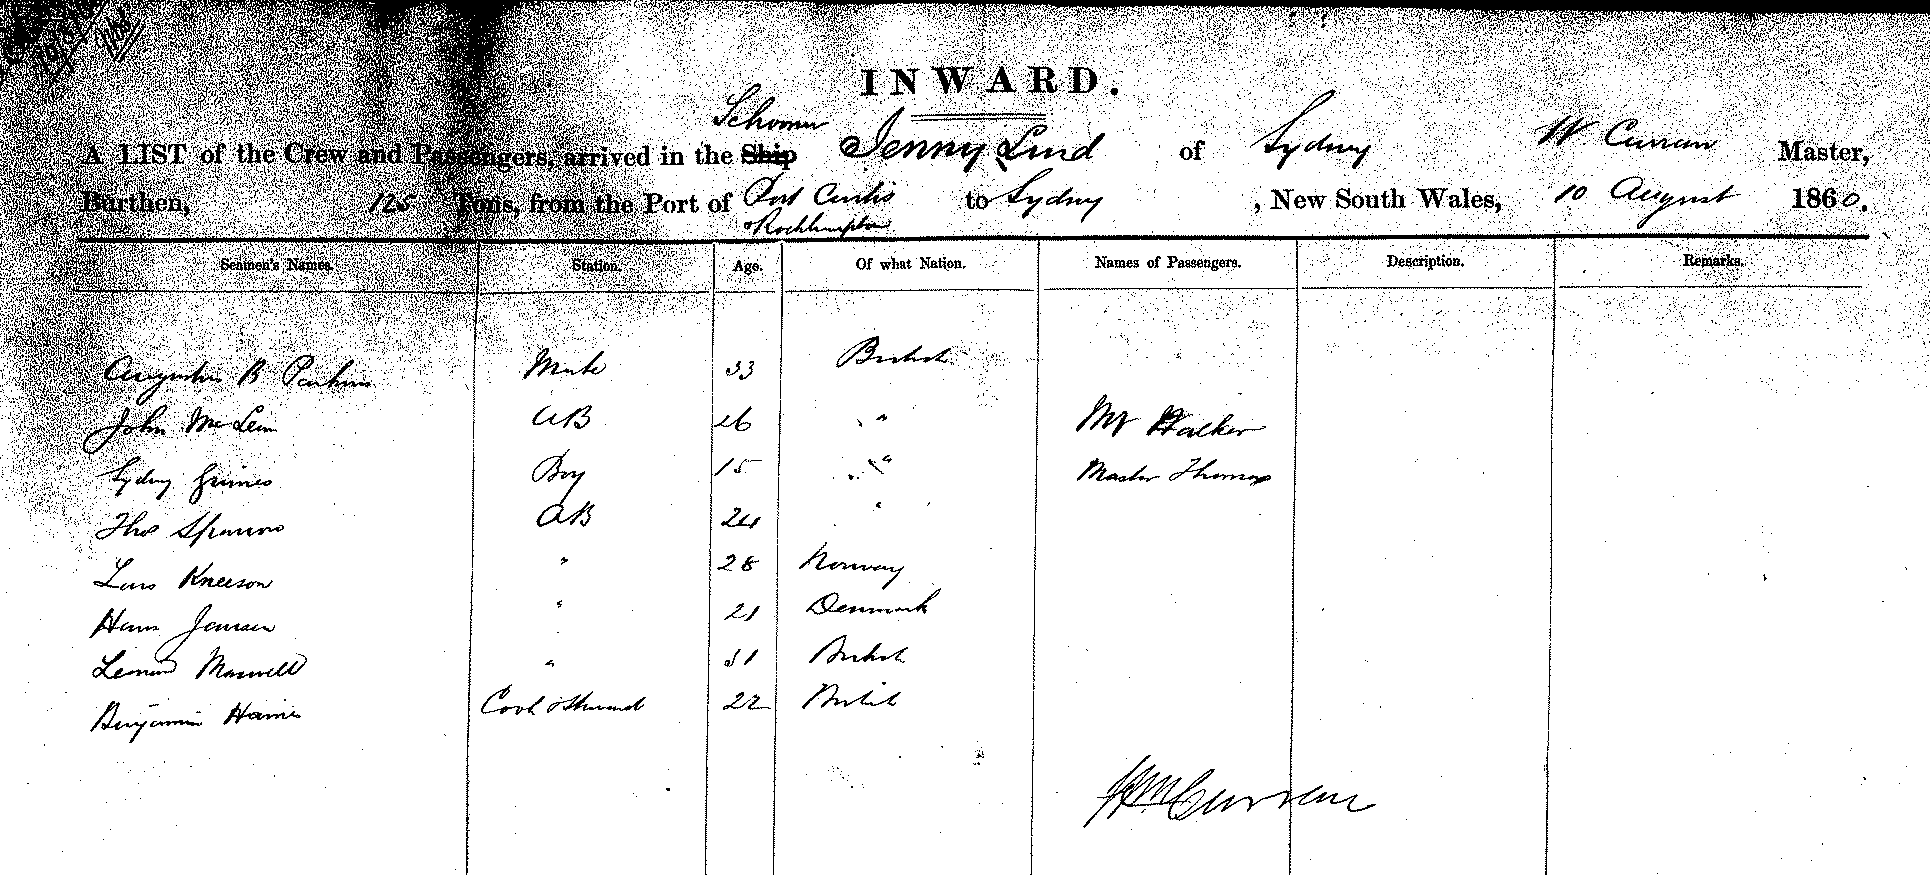 INWARD.
Schooner
A LIST of the Crew and Passengers, arrived in the Ship Jenny Lind of Sydney W Curran Master,
Burthen, 125 Tons, from the Port of Port Curtis to Sydney , New South Wales, 10 August 1860.
& Rockhampton
Seamen's Names. Station. Age. Of what Nation. Names of Passengers. Description. Remarks.
Augustus B Perkins Mate 33 British
John McLean AB 26 " " Mr Walker
Sydney Grimes Boy 15 " " Master Thomas
Thos Sparrow AB 24 "
Lars Kneeson " 28 Norway
Hans Jensen " 21 Denmark
Maxwell " 31 British
Benjamin Harris Cook & Steward 22 British
Wm Curran